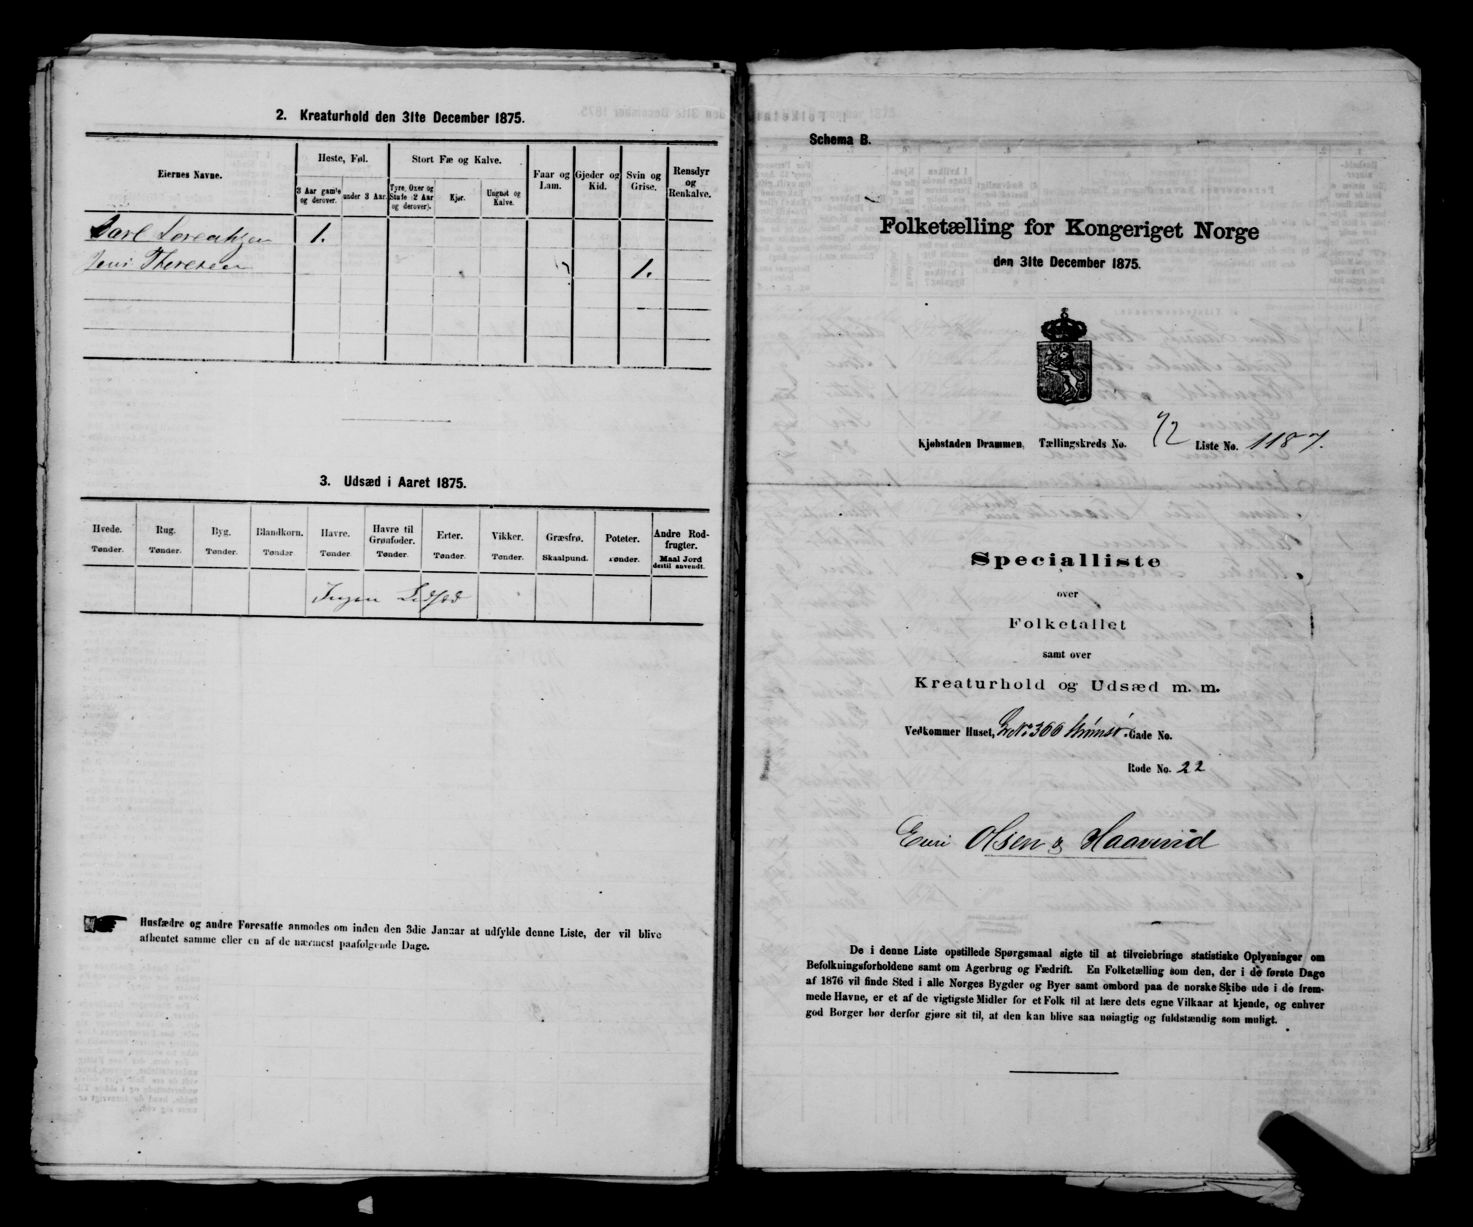 2. Kreaturhold den 31te December 1875.
Eiernes Navne.
Heste, Føl.
Stort Fæ og Kalve.
Faar og Lam.
Gjeder og Kid.
Svin og Grise.
Rensdyr og Renkalve.
3 Aar gamle og derover.
under 3 Aar.
Tyre, Oxer og Stude (2 Aar og derover).
Kjør.
Ungnøt og Kalve.
Carl Lorentzen 1.
Jens Theresen 1.
3. Udsæd i Aaret 1875.
Hvede. Tønder.
Rug. Tønder.
Byg. Tønder.
Blandkorn. Tønder
Havre. Tønder.
Havre til Grønfoder. Tønder.
Erter. Tønder.
Vikker. Tønder.
Græsfrø. Skaalpund.
Poteter. Tønder.
Andre Rodfrugter. Maal Jord dertil anvendt.
Ingen Udsæd
Husfædre og andre Foresatte anmodes om inden den 3die Januar at udfylde denne Liste, der vil blive
afhentet samme eller en af de nærmest paafølgende Dage.
Schema B.
Folketælling for Kongeriget Norge
den 31te December 1875.
Kjøbstaden Drammen, Tællingskreds No. 12 Liste No. 1187.
Specialliste
over
Folketallet
samt over
Kreaturhold og Udsæd m. m.
Vedkommer Huset, No 366 Gade No.
Rode No. 22
Olsen & Haavind
De i denne Liste opstillede Spørgsmaal sigte til at tilveiebringe statistiske Oplysninger om
Befolkningsforholdene samt om Agerbrug og Fædrift. En Folketælling som den, der i de første Dage
af 1876 vil finde Sted i alle Norges Bygder og Byer samt ombord paa de norske Skibe ude i de frem-
mede Havne, er et af de vigtigste Midler for et Folk til at lære dets egne Vilkaar at kjende, og enhver
god Borger bør derfor gjøre sit til, at den kan blive saa nøiagtig og fuldstændig som muligt.